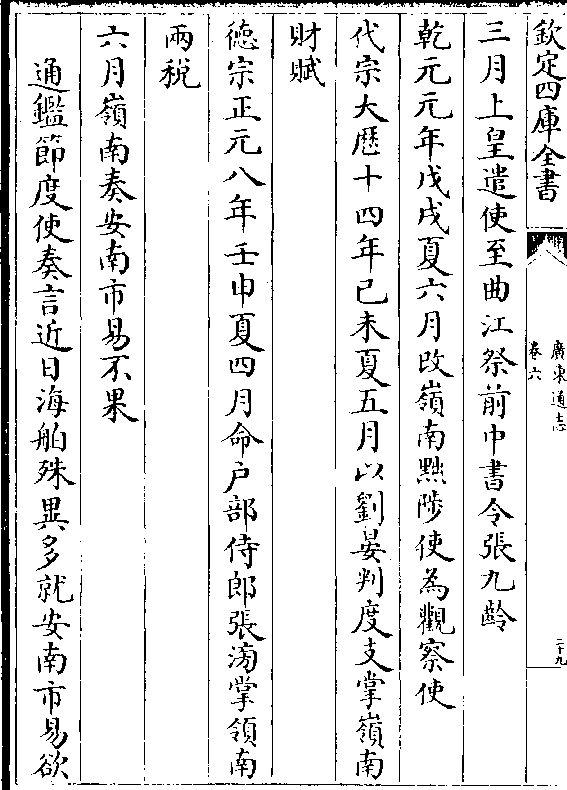 欽定四庫全書
廣東通志
卷六
二十九
三月上皇遣使至曲江祭前中書令張九齡
乾元元年戊戌夏六月改嶺南黜陟使為觀察使
代宗大厯十四年己未夏五月以劉晏判度支掌嶺南
財賦
德宗正元八年壬申夏四月命户部侍郎張滂掌領南
兩稅
六月嶺南奏安南市易不果
通鑑節度使奏言近日海舶殊異多就安南市易欲